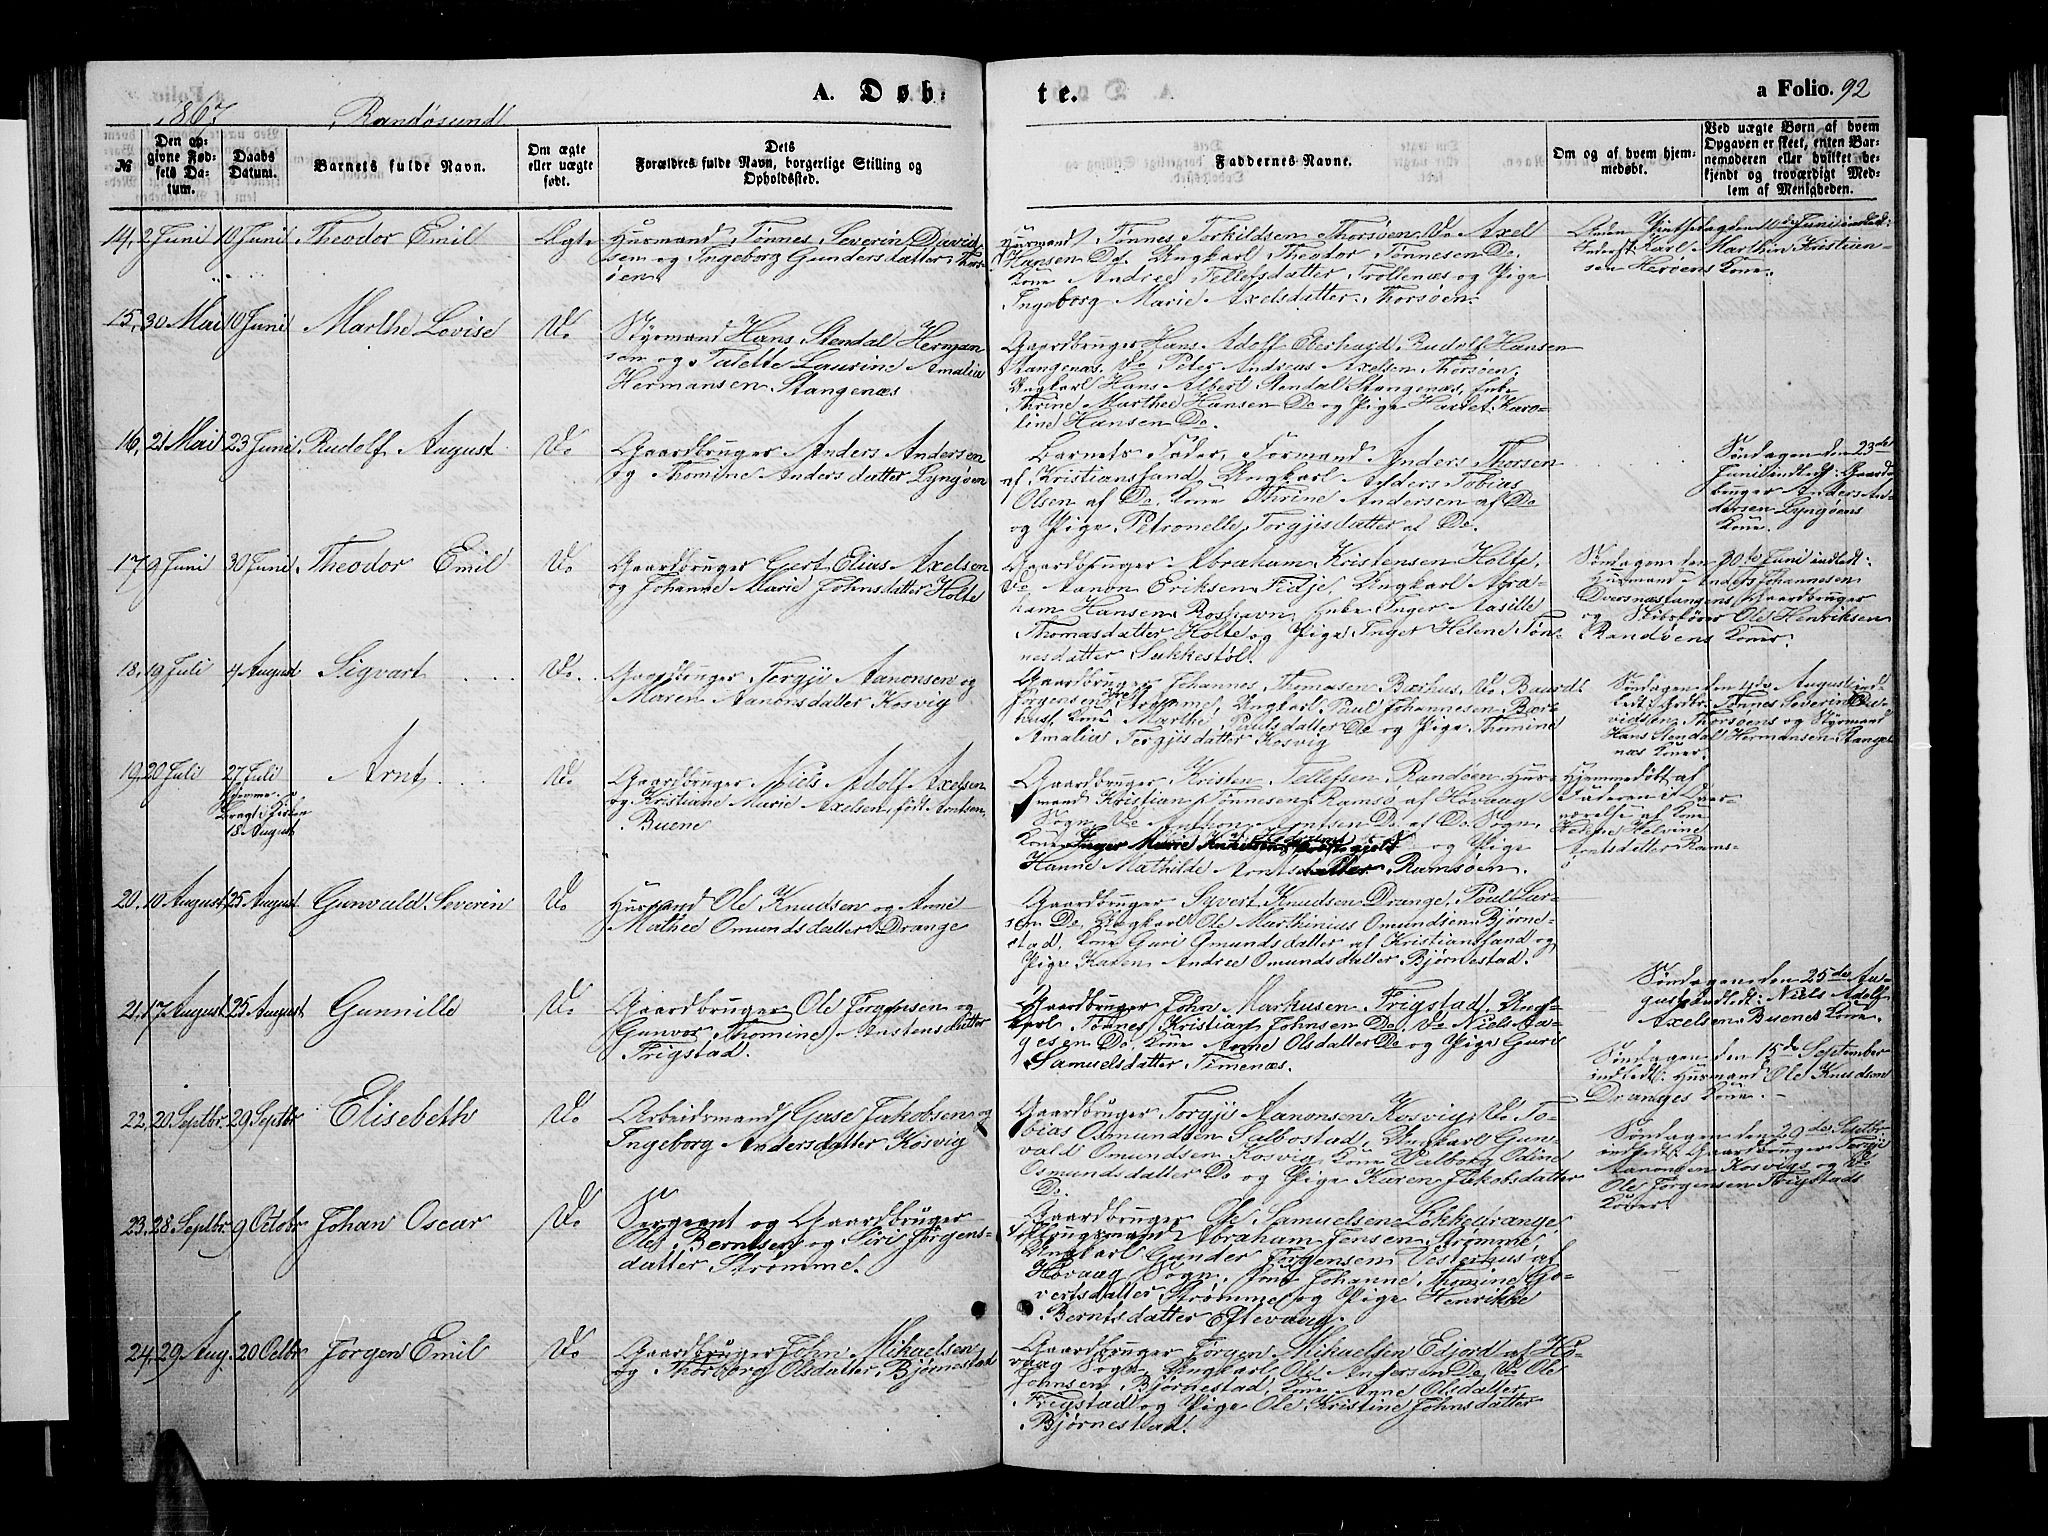 A. Døb-
te.
a Folio. 92
1867
Randøsund
№
Den op-
givne Fød-
sels Da-
tum.
Daabs
Datum.
Barnets fulde Navn.
Om ægte
eller uægte
født.
Dets
Forældres fulde Navn, borgerlige Stilling og
Opholdssted.
Faddernes Navne.
Om og af hvem hjem-
medøbt.
Ved uægte Børn af hvem
Opgaven er skeet, enten Bar-
nemoderen eller hvilket be-
kjendt og troværdigt Med-
lem af Menigheden.
14, 2 Juni 10 Juni Theodor Emil Ægte
Husmand Tønnes Severin David-
sen og Ingeborg Gundersdatter Thors-
øen.
Husmand Tønnes Torkildsen Thorsøen, Do Axel
Hansen Do, Ungkarl Theodor Tønnesen Do,
Kone Andrea Tellefsdatter Trollenæs og Pige
Ingeborg Marie Axelsdatter, Thorsøen.
Anden Pintsedag den 10de Juni indledt:
Inderst Karl Marthin Kristen-
sen Herøens Kone.
15, 30 Mai 10 Juni Marthe Lovise Do
Styrmand Hans Stendal Herman-
sen og Talette Laurine Amalia
Hermansen, Stangenæs
Gaardbruger Hans Adolf Eberhard Rudolf Hansen
Stangenæs, Do Peter Andreas Axelsen Thorsøen,
Ungkarl Hans Albert Stendal Stangenæs, Enke
Thrine Marthea Hansen Do og Pige Karo-
line Hansen Do.
16, 21 Mai 23 Juni Rudolf August Do
Gaardbruger Anders Andersen
og Thomine Andersdatter Lyngøen
Barnets Fader, Formand Anders Thorsen
af Kristiansand, Ungkarl Anders Tobias
Olsen af Do, Kone Thrine Andersen af Do
og Pige Petronelle Torgjisdatter af Do.
Søndagen den 23de
Juni indledt: Gaard-
bruger Anders An-
dersen Lyngøens
Kone.
17, 9 Juni 30 Juni Theodor Emil Do
Gaardbruger Gert Elias Axelsen
og Johanne Marie Johnsdatter Holte
Gaardbruger Abraham Kristensen Holte,
Do Aanon Eriksen Fidje, Ungkarl Abra-
ham Hansen Roshavn, Enke Inger Aasille
Thomasdatter Holte og Pige Inger Helene Tøn-
nesdatter Sukkestøl.
Søndagen den 30te Juni indledt:
Husmand Anders Johannesen
Dversnæstangens, Gaardbruger
og Skibsfører Ole Henriksen
Randøens Koner.
18, 19 Juli 4 August Sigvart Do
Gaardbruger Torgji Aanonsen og
Maren Aanonsdatter Kosvig
Gaardbruger Johannes Thomasen Bærhus, Do Baard
Jørgensen Strømme, Ungkarl Paul Johannesen Bær-
hus, Kone Marthe Paulsdatter Do og Pige Thomine
Amalia Torgjisdatter Kosvig
Søndagen den 4de August ind-
ledt: Tønnes Severin Da-
vidsen Thorsøens og Styrmand
Hans Stendal Hermansen Stange-
næs Koner.
19, 20 Juli 27 Juli
hjemme.
Bragt i Kirken
18 August
Arnt Do
Gaardbruger Niels Adolf Axelsen
og Kristiane Marie Axelsen, født Arntsen,
Buene
Gaardbruger Kristen Tellefsen Randøen, Hus-
mand Kristian Tønnesen Ramsø af Høvaag
Sogn, Do Anton Arntsen Do af Do Sogn,
Kone og Pige
Hanne Mathilde Arntsdatter Ramsøen.
Hjemmedøbt af
Faderen i Over-
værelse af Kone
Helene Helvine
Arntsdatter Rams-
ø
20, 10 August 25 August Gunvald Severin Do
Husmand Ole Knudsen og Anne
Mathea Omundsdatter Drange
Gaardbruger Syvert Knudsen Drange, Poul Lar-
sen Do, Ungkarl Ole Marthinius Omundsen Bjørne-
stad, Kone Guri Omundsdatter af Kristiansand og
Pige Karen Andrea Omundsdatter Bjørnestad.
21, 17 August 25 August Gunnille Do
Gaardbruger Ole Jørgensen og
Gunvor Thomine Anstensdatter
Frigstad.
Gaardbruger John Markusen Frigstad, Ung-
karl Tønnes Kristian Johnsen Do, Do Niels Aa-
gesen Do, Kone Anne Olsdatter Do og Pige Guri
Samuelsdatter Timenæs.
Søndagen den 25de Au-
gust indledt: Niels Adolf
Axelsen Buenes Kone.
Søndagen den 15de September
indledt: Husmand Ole Knudsen
Dranges Kone.
22, 20 Septbr 29 Septbr Elisebeth Do
Arbeidsmand Gase Jakobsen og
Ingeborg Andersdatter Kosvig
Gaardbruger Torgji Aanonsen Kosvig, Do To-
bias Osmundsen Salbostad, Ungkarl Gun-
vald Omundsen Kosvig, Kone Valborg Odine
Osmundsdatter Do og Pige Karen Jakobsdatter
Do.
Søndagen den 29de Septbr
indledt: Gaardbruger Torgji
Aanonsen Kosvigs og Do
Ole Jørgensen Frigstads
Koner.
23, 28 Septbr 9 Octobr Johan Oscar Do
Sergeant og Gaardbruger
Ole Berntsen og Siri Jørgens-
datter Strømme.
Gaardbruger Ole Samuelsen Løkkedrange,
Abraham Jensen Strømme,
Ungkarl Gunder Jørgensen Vesterhus af
Høvaag Sogn, Johanne Thomine Go-
vertsdatter Strømme og Pige Henrikke
Berntsdatter Eftevaag.
24, 29 Aug. 20 Octbr Jørgen Emil Do
Gaardbruger John Mikaelsen
og Thorborg Olsdatter, Bjørnestad
Gaardbruger Jørgen Mikaelsen Eijord af Hø-
vaag Sogn, Ungkarl Ole Andersen Do, Do Ole
Johnsen Bjørnestad, Kone Anne Olsdatter
Frigstad og Pige Ole Kristine Johnsdatter
Bjørnestad.